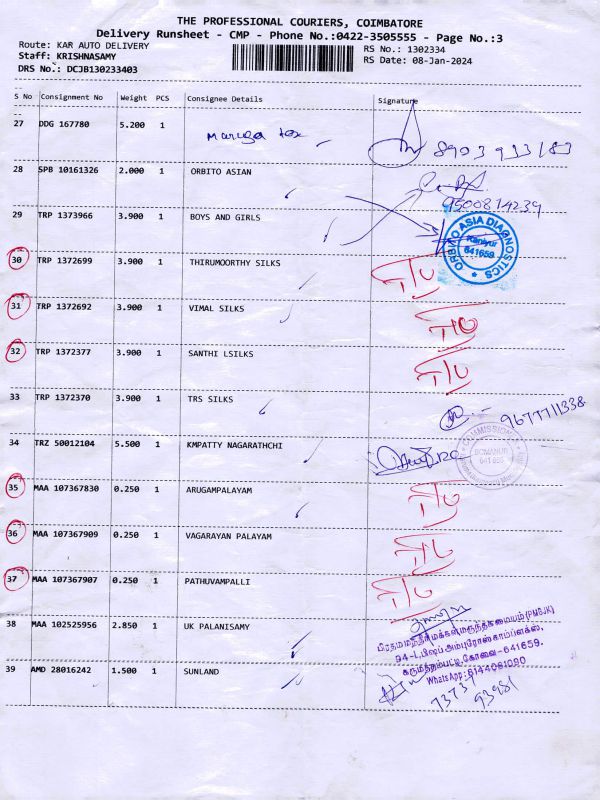 THE PROFESSIONAL COURIERS, COIMBATORE
Delivery Runsheet - CMP - Phone No.:0422-3505555 - Page No.:3
Route: KAR AUTO DELIVERY RS No.: 1302334
Staff: KRISHNASAMY RS Date: 08-Jan-2024
DRS No.: DCJB130233403
S No Consignment No Weight PCS Consignee Details Signature
27 DDG 167780 5.200 1 8903 933183
28 SPB 10161326 2.000 1 ORBITO ASIAN
9500814239
29 TRP 1373966 3.900 1 BOYS AND GIRLS
ORBITO ASIA DIAGNOSTICS
Kaniyur
641659
30 TRP 1372699 3.900 1 THIRUMOORTHY SILKS T/U
31 TRP 1372692 3.900 1 VIMAL SILKS T/U
32 TRP 1372377 3.900 1 SANTHI LSILKS T/U
33 TRP 1372370 3.900 1 TRS SILKS 9677711338
34 TRZ 50012104 5.500 1 KMPATTY NAGARATHCHI
35 MAA 107367830 0.250 1 ARUGAMPALAYAM T/U
36 MAA 107367909 0.250 1 VAGARAYAN PALAYAM T/U
37 MAA 107367907 0.250 1 PATHUVAMPALLI T/U
38 MAA 102525956 2.850 1 UK PALANISAMY
பிரதமமந்திரி மக்கள் மருந்தகமையம் (PMBJK)
கருமத்தம்பட்டி, கோவை-641659.
WhatsApp: 6144081090
39 AMD 28016242 1.500 1 SUNLAND
73737
93981